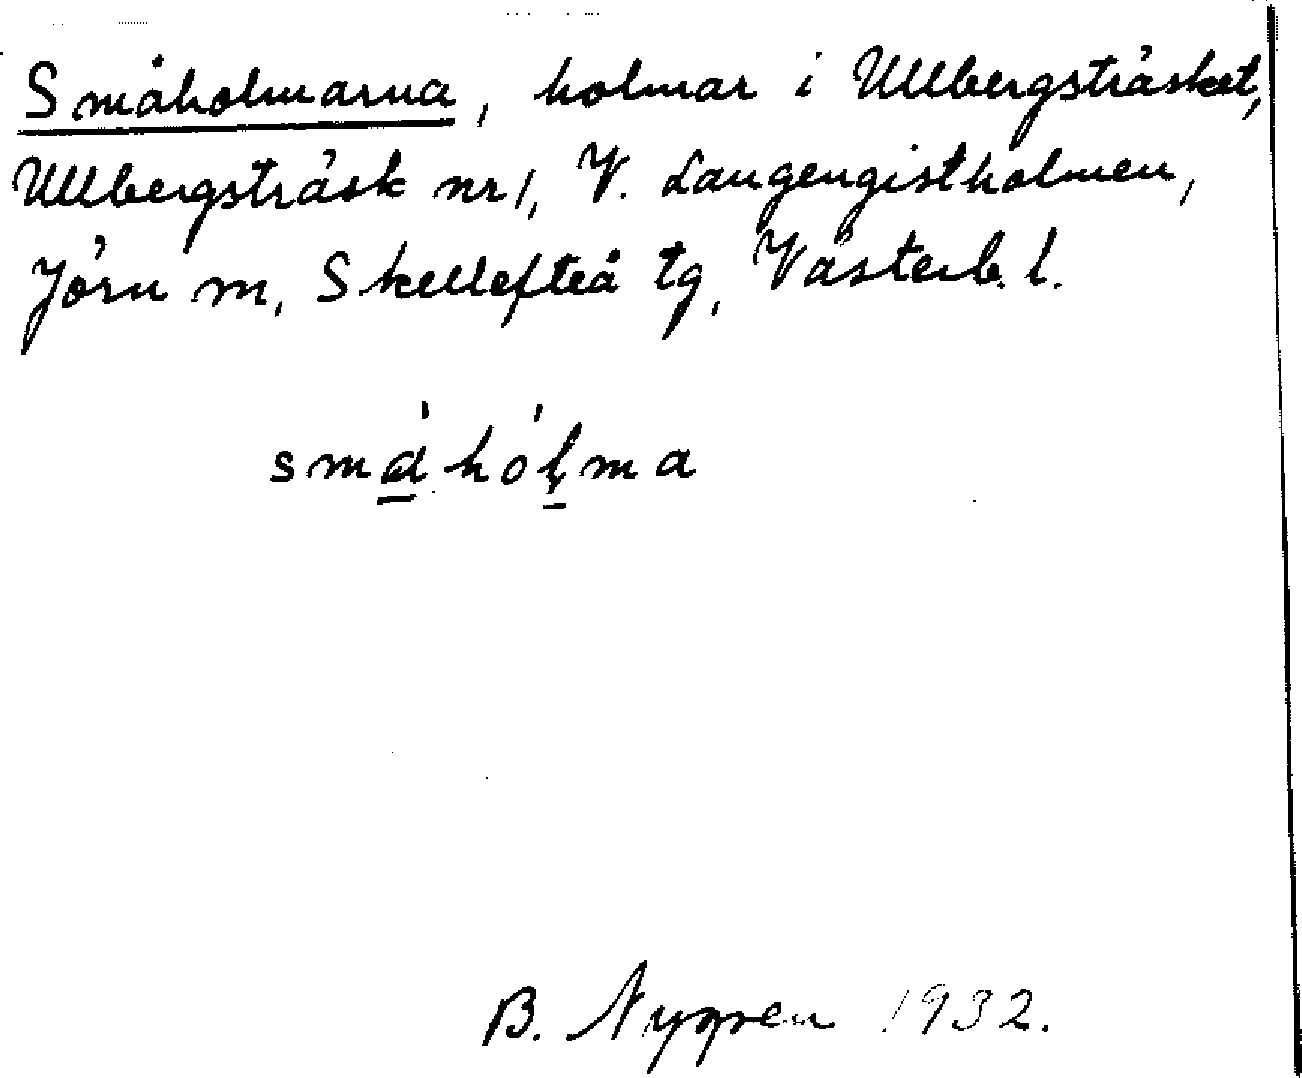 Småholmarna, holmar i Ullbergsträsket,
Ullbergsträsk nr 1, V. Långengistholmen,
Jörn m, Skellefteå tg, Västerb. l.
småhólma
B. Nygren 1932.